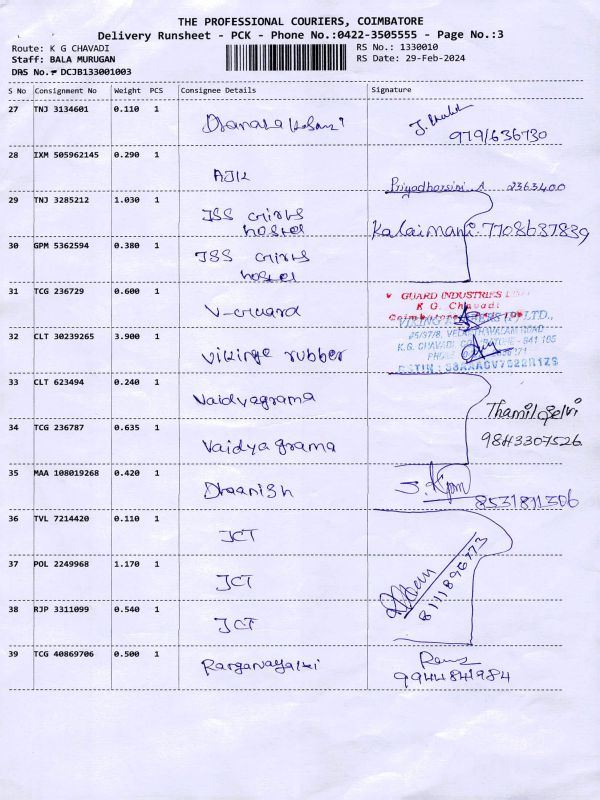 THE PROFESSIONAL COURIERS, COIMBATORE
Delivery Runsheet - PCK - Phone No.:0422-3505555 - Page No.:3
Route: K G CHAVADI
RS No.: 1330010
Staff: BALA MURUGAN
RS Date: 29-Feb-2024
DRS No.- DCJB133001003
S No Consignment No Weight PCS Consignee Details Signature
27 TNJ 3134601 0.110 1
9791636730
28 IXM 505962145 0.290 1
AJK
Priyadharsini A 2363400
29 TNJ 3285212 1.030 1 JSS Girls
hostel
Kalaimani. 7708637839
30 GPM 5362594 0.380 1 JSS Girls
hostel
31 TCG 236729 0.600 1 V-Guard
V GUARD INDUSTRIES
K G. Chavadi
32 CLT 30239265 3.900 1 Vikinge rubber
LTD.,
33 CLT 623494 0.240 1 Vaidyagrama
Thamil Selvi
9843307526
34 TCG 236787 0.635 1 Vaidyagrama
35 MAA 108019268 0.420 1 Dhaanish
8531811306
36 TVL 7214420 0.110 1 JCT
37 POL 2249968 1.170 1 JCT
8111896773
38 RJP 3311099 0.540 1 JCT
39 TCG 40869706 0.500 1
9944841984